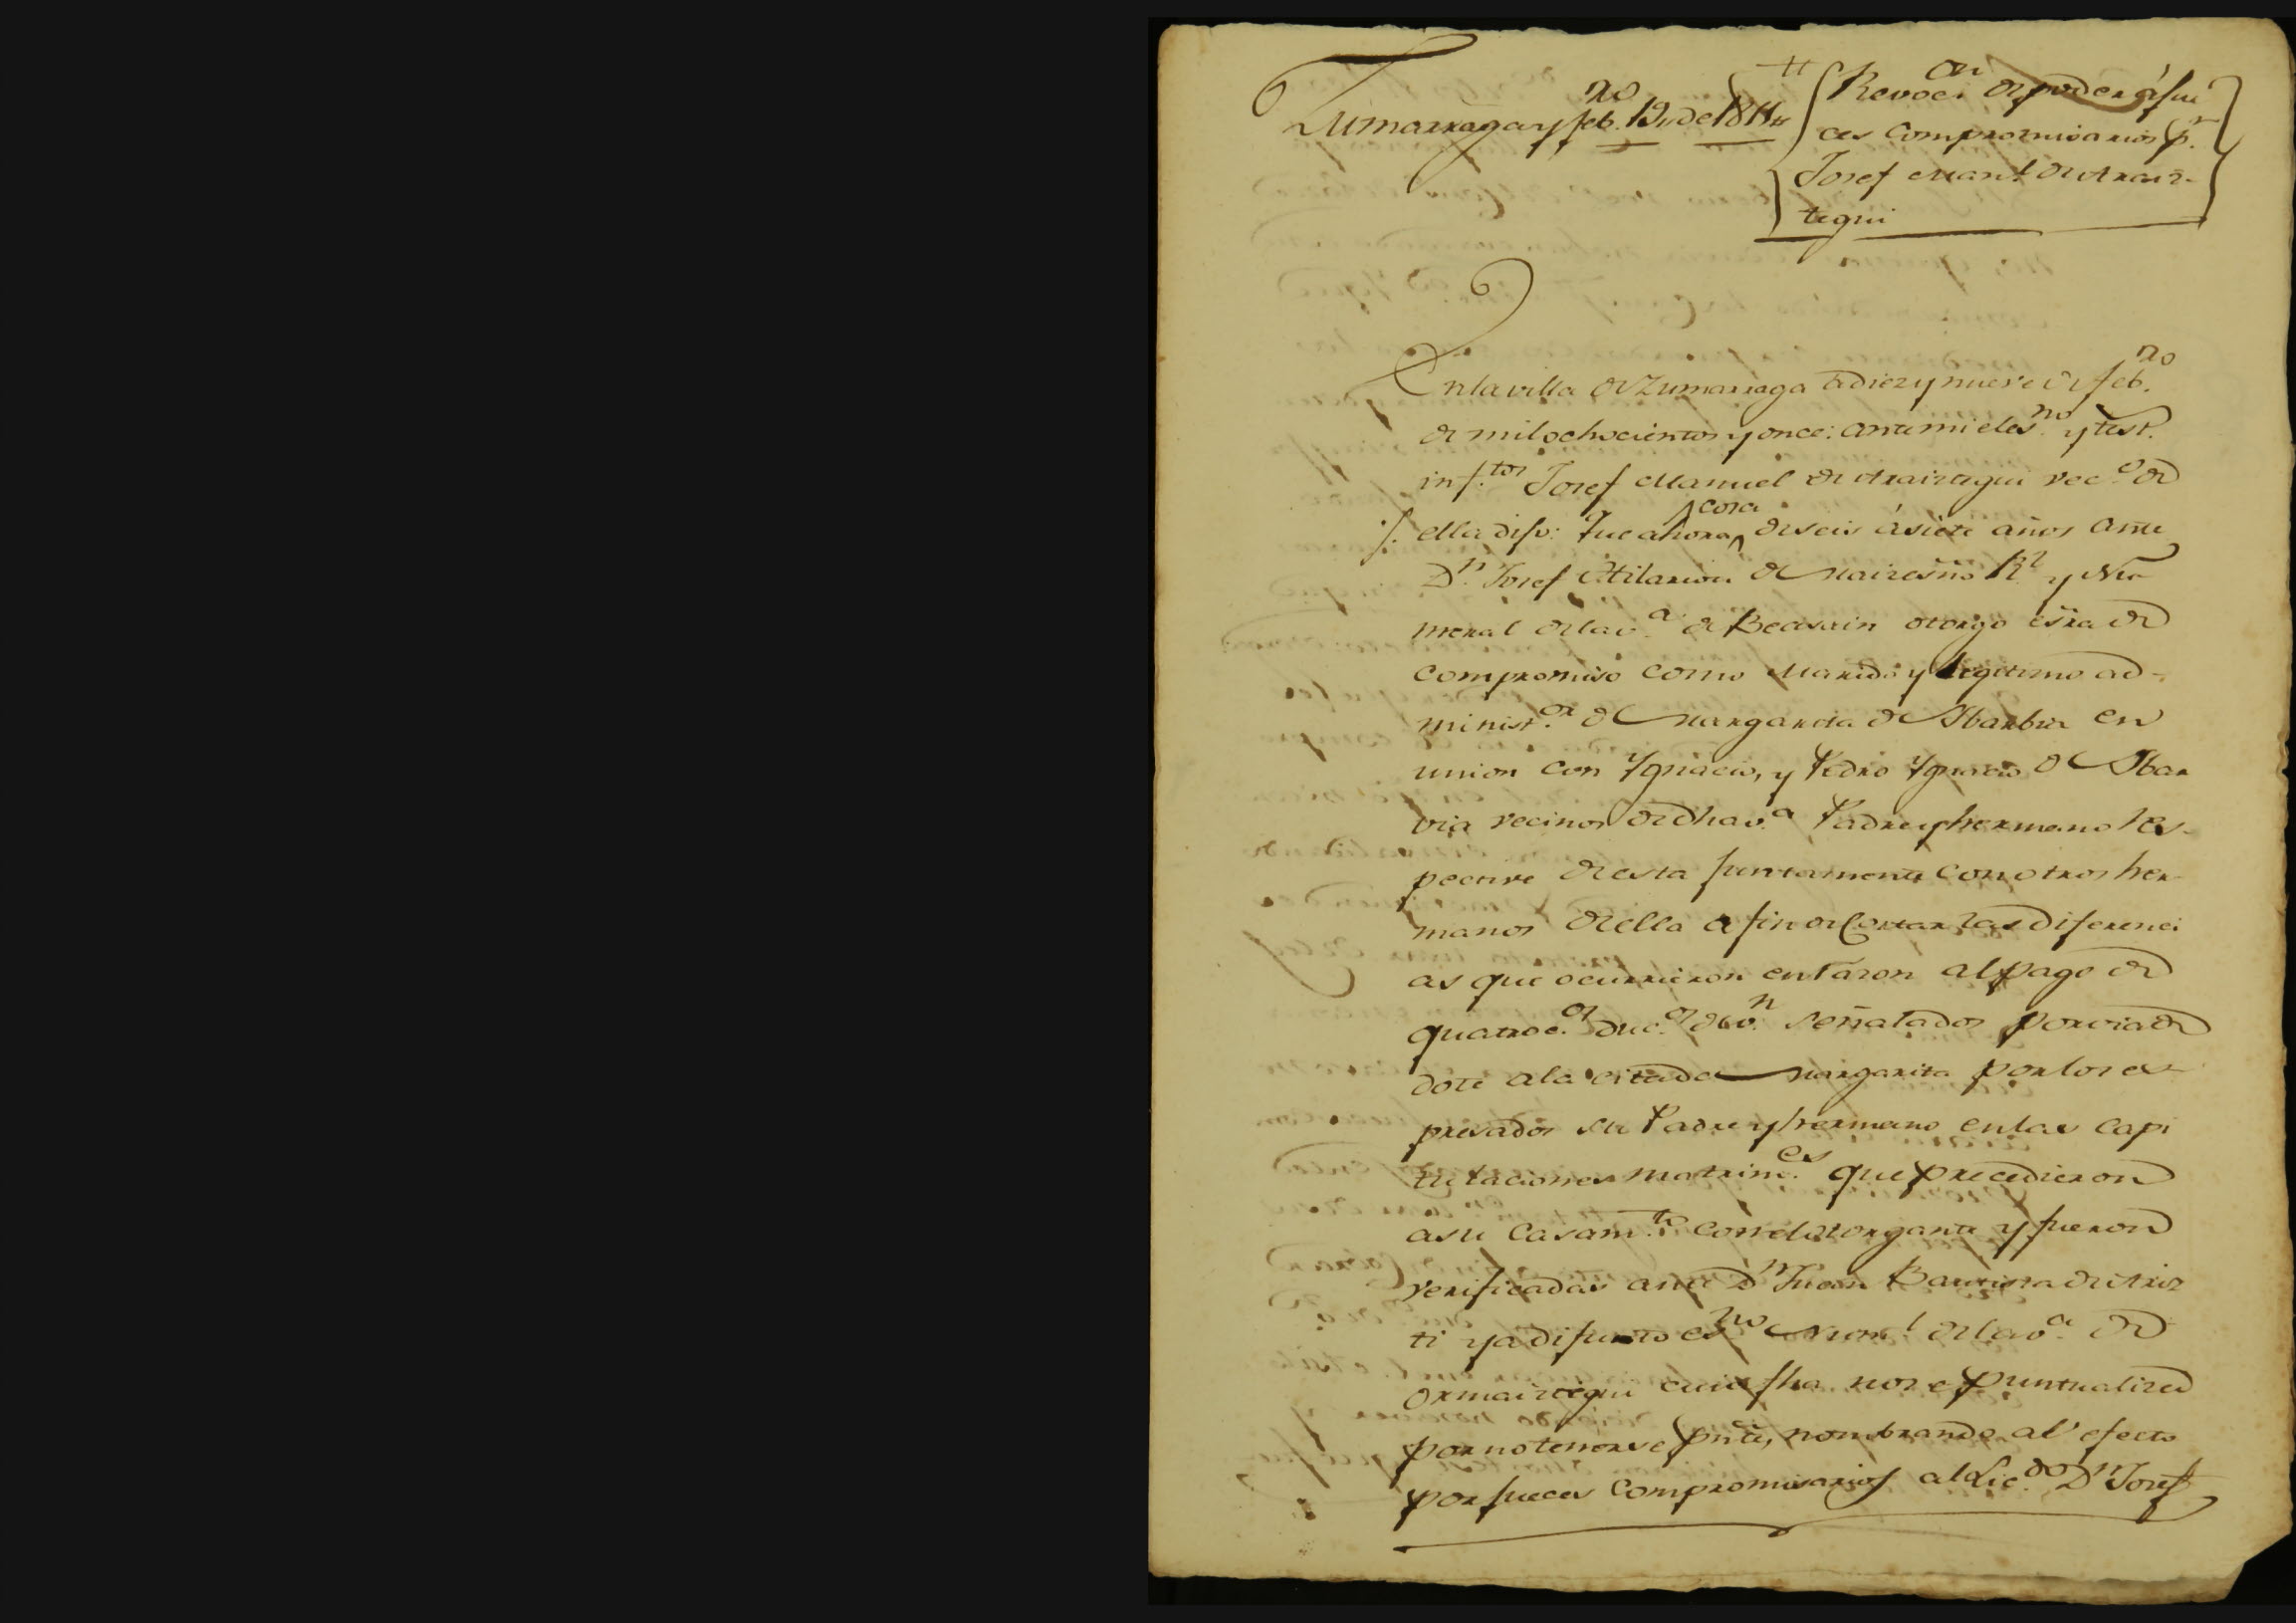 Zumarraga y feb.ro 19,, de 1811,,
Revoc.on de poder á Jue
ces Compromisarios p.r
Josef Man.l de Araiz-
tegui
En la villa de Zumarraga a diez y nueve de feb.ro
de mil ochocientos y once: ante mi el es.no y test.
inf.tos Josef Manuel de Araiztegui vec.o de
ella dijo: Que ahora cosa de seis á siete años ante
D.n Josef Hilarion de Maiz esno R.l y Nu-
meral de la v.a de Beasain otorgo esra de
compromiso como Marido y legitimo ad-
minist.or de Margarita de Ybarbia en
union con Ygnacio, y Pedro Ygnacio de Ybar
via vecinos de dha v.a Padre y hermano res-
pective de esta juntamente con otros her-
manos de ella a fin de Cortar las diferenci
as que ocurrieron en razon al pago de
quatroc.os duc.os de v.n señalados por via de
dote a la citada Margarita por los ex-
presados su Padre y hermano en las capi
tulaciones matrim.es que precedieron
a su Casam.to con el otorgante y fueron
verificadas ante D.n Juan Bautista de Ariz
ti ya difunto es.no Num.l de la v.a de
Ormaiztegui cuia fha no se puntualiza
por no tenerse pnte, nombrando al efecto
por jueces Compromisarios al Lic.do D.n Josef